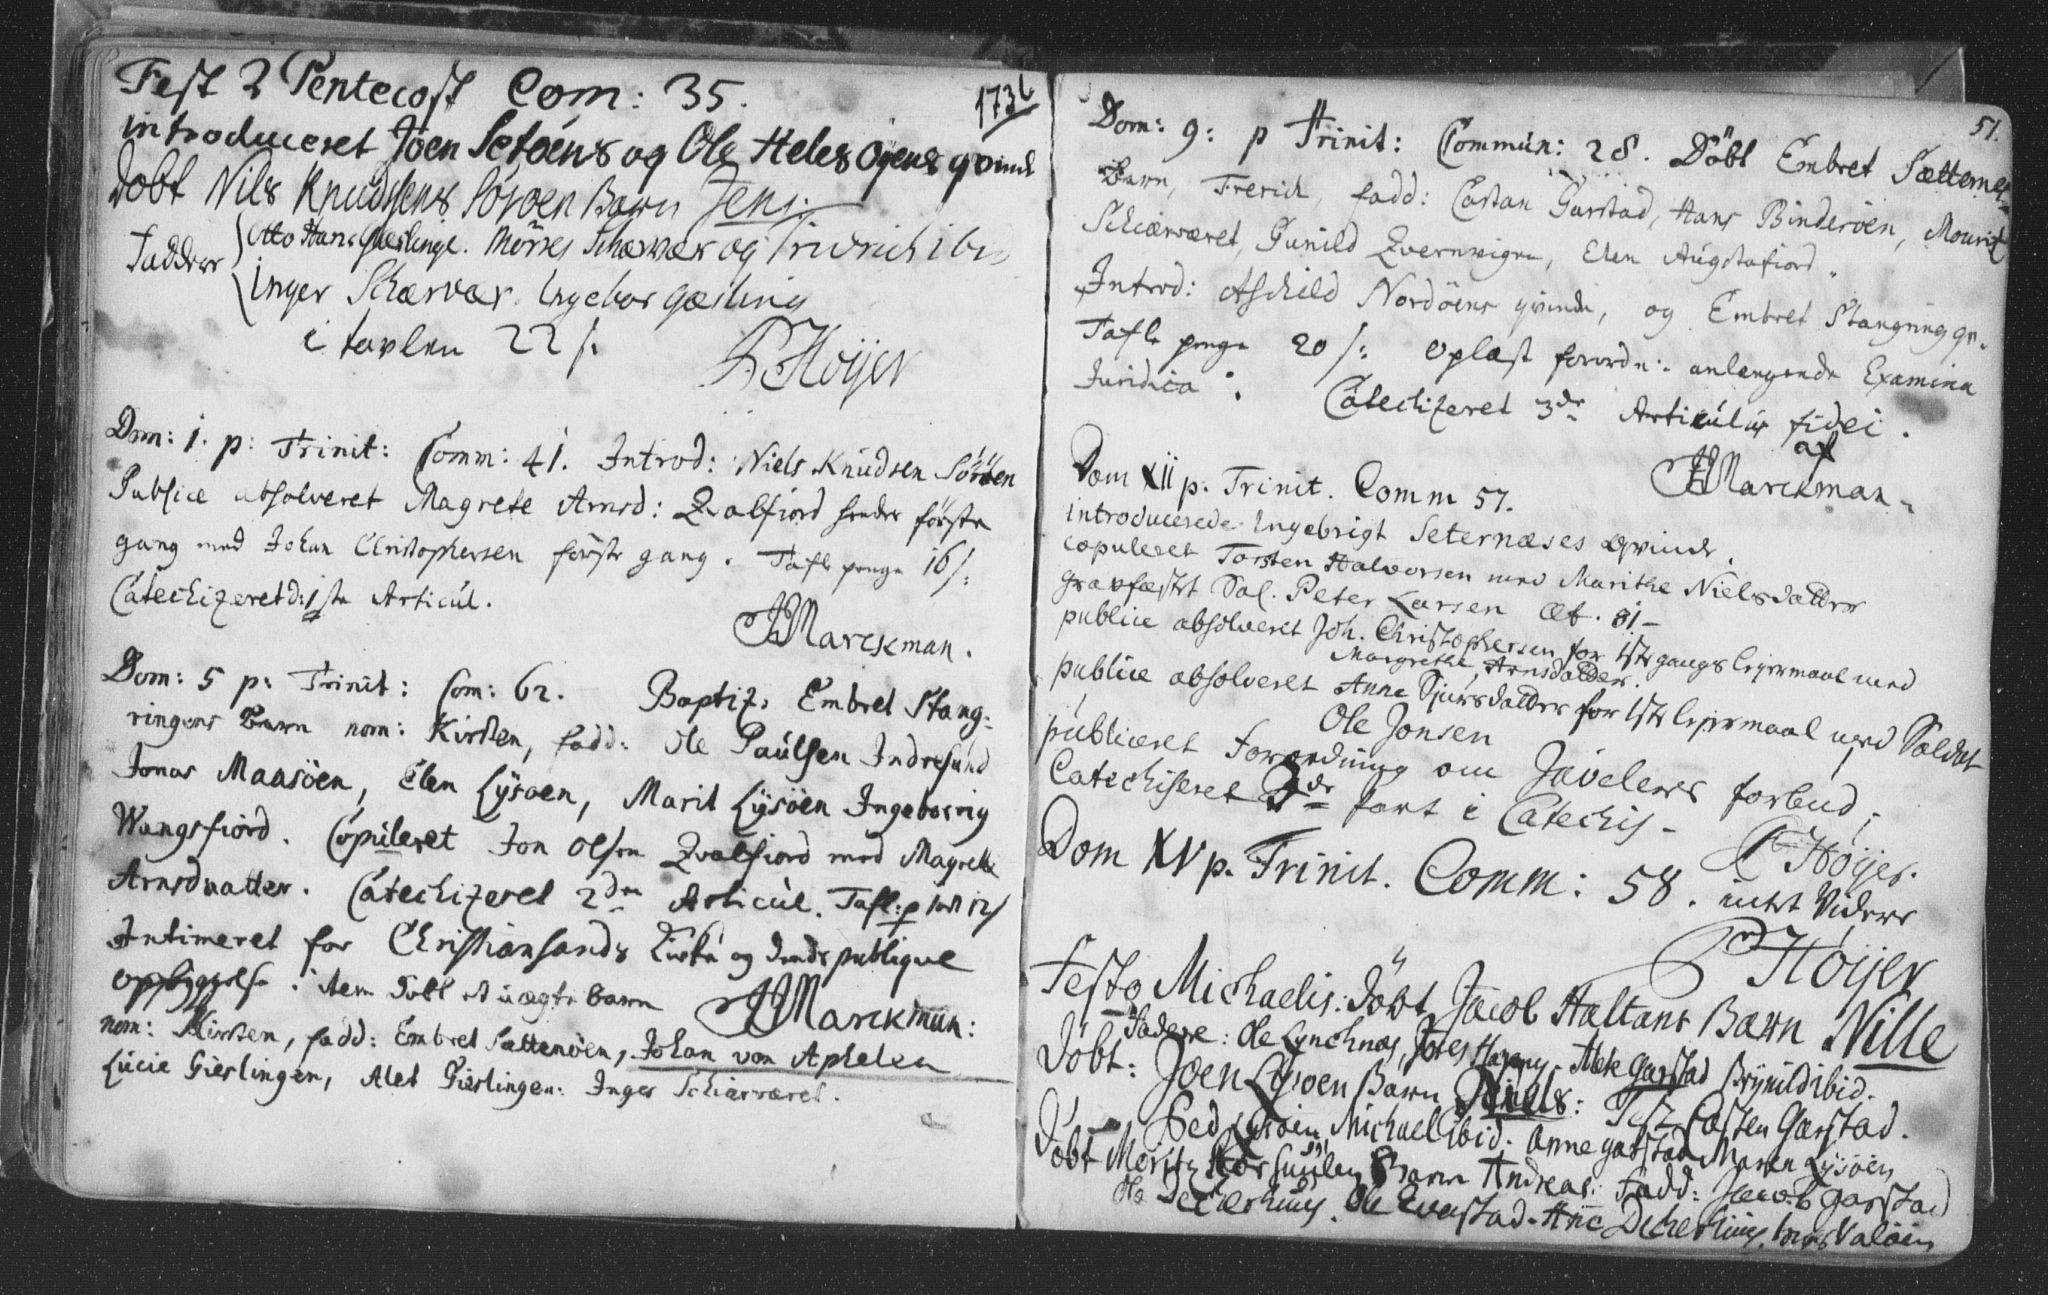 Fest 2 Pentecost Com: 35.
1736
introduceret Joen Setøens og Ole Heles Øyens qvinde
Døbt Nils Knudsens Sørøen Barn Jens.
Faddere Otto Hans Gieslinge. Morres Schærvær og Fridrich ibi
Inger Schærvær. Ingebor Gæsling
i tavlen 22 s.
P Höijer
Dom: 1. p: Trinit: Comm: 41. Introd: Niels Knudsen Sörøen
Publice absolveret Magrete Arnsd: Qvalfiord hendes förste
gang med Johan Christophersen förste gang. Tafle penge 16 s:
Catechizeret d: 1ste Articul.
Marckman.
Dom: 5 p: Trinit: Com: 62. Baptiz: Embret Stang-
ringens Barn nom: Kirsten, fadd: Ole Paulsen Indresund
Jonas Maasöen, Elen Lysöen, Marit Lysöen Ingeborrig
Wangsfiord. Copuleret Jon Olsen Qvalfiord med Magrete
Arnsdaatter. Catechizeret 2den Articul. Tafl: p 12 s
Intimeret for Christiansands Kirke og dends publique
opbyggelse. item döbt et uægte barn
Marckman:
nom: Kirsten, fadd: Embret Sættenöen, Johan von Aphelen
Lucie Gieslingen, Alet Gieslingen: Inger Schiærværet.
51.
Dom: 9: p Trinit: Commun: 28. Döbt Embret Sættemes
Barn, Frerich, fadd: Castan Garstad, Hans Binderöen, Mouritz
Schiærværet, Gunild Qvernvigen, Elen Augstafiord.
Introd: Aschild Nordöens qvinde, og Embret Stangrings qv.
Tafle penge 20 s: oplæst forordn: anlangende Examina
Juridica. Catechizeret 3die Articulus fidei.
af
Marckman.
Dom XII p: Trinit. Comm 57.
introducerede Ingebrigt Seternæses Qvinde.
copuleret Torsten Halvorsen med Marithe Nielsdatter
gravfæstet Sal. Peter Larsen æt. 81-
publice absolveret Joh. Christophersen for 1ste gangs leyermaal med
Margrethe Arnsdatter.
publice absolveret Anne Sjursdatter for 1ste leyermaal med Soldat
Ole Jonsen
publiceret Forordning om Javelers forbud.
Catechiseret 3de part i Catechis-
P Höijer.
Dom XV p. Trinit. Comm: 58. intet Videre
P Höijer
Festo Michaelis: Döbt Jacob Haltans Barn Nille
Fadere: Ole Lynchnæs, Alete Garstad Brynild ibid.
Döbt: Joen Lysöen Barn Niels: Test Casten Garstad.
Ped Lysöen Michael ibid. Anne Garstad Maren Lysöen
Döbt Moritz Barn Andreas: Fadd: Jacob Garstad
Ole Ole Evenstad. Ane Valöen